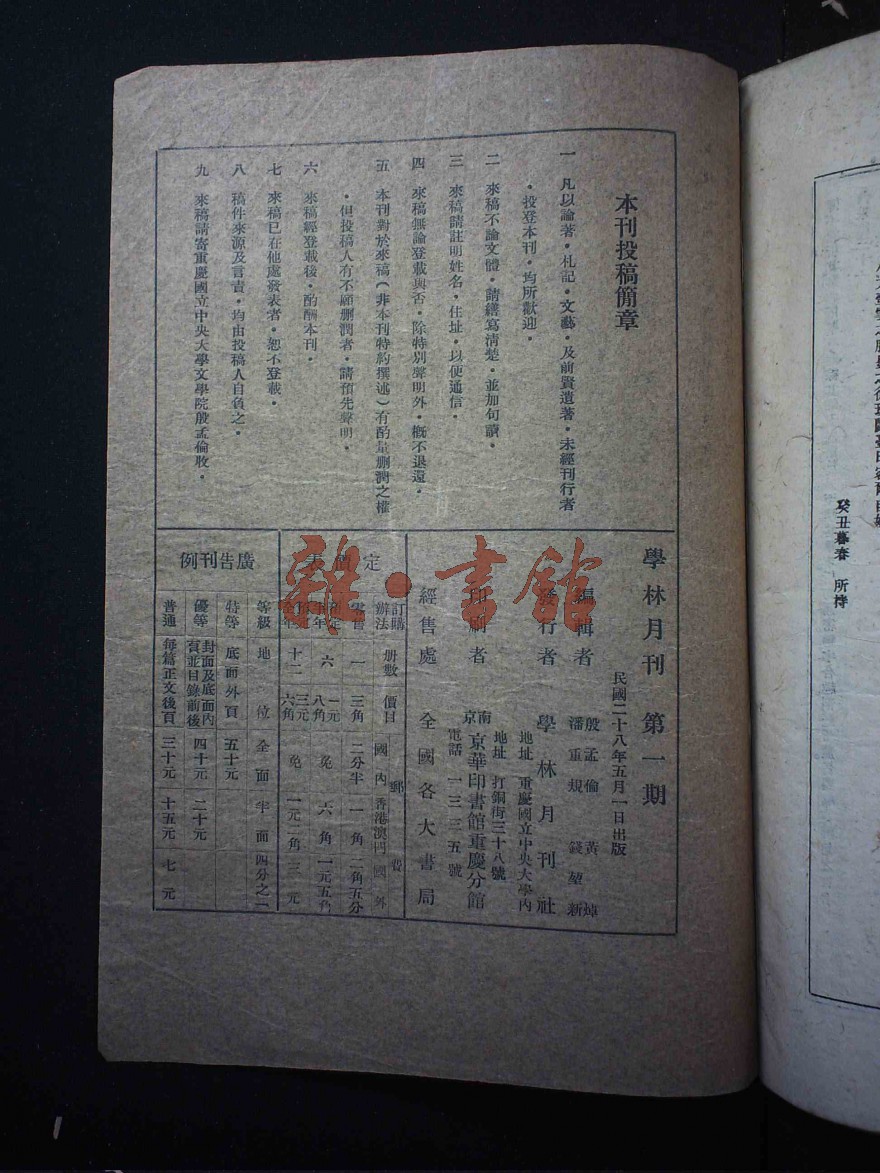 本刊投稿簡章
一 凡以論著・札記・文藝・及前賢遺著・未經刊行者
・投登本刊・均所歡迎・
二 來稿不論文體・請繕寫清楚・並加句讀・
三 來稿請註明姓名・住址・以便通信・
四 來稿無論登載與否・除特別聲明外・概不退還・
五 本刊對於來稿(非本刊特約撰述)有酌量删潤之權
・但投稿人有不願删潤者・請預先聲明・
六 來稿經登載後・酌酬本刊・
七 來稿已在他處發表者・恕不登載・
八 稿件來源及言責・均由投稿人自負之・
九 來稿請寄重慶國立中央大學文學院殷孟倫收・
學林月刊 第一期
民國二十八年五月一日出版
編輯者 殷孟倫 黃焯
潘重規 錢堃新
發行者 學林月刊社
地址 重慶國立中央大學內
印刷者 南京京華印書館重慶分館
地址 打銅街三十八號
電話 一三三五號
經售處 全國各大書局
定價表
訂購辦法 册數 價目 郵費
國內 香港澳門 國外
零售 一 三角 二分半 一角 二角五分
預定半年 六 一元八角 免 六角 一元五角
預定全年 十二 三元六角 免 一元二角 三元
廣告刊例
等級 地位 全面 半面 四分之一
特等 底面外頁 五十元
優等 封面及底面內頁並目錄前後 四十元 二十元
普通 每篇正文後頁 三十元 十五元 七元
雜・書館
癸丑暮春 所持